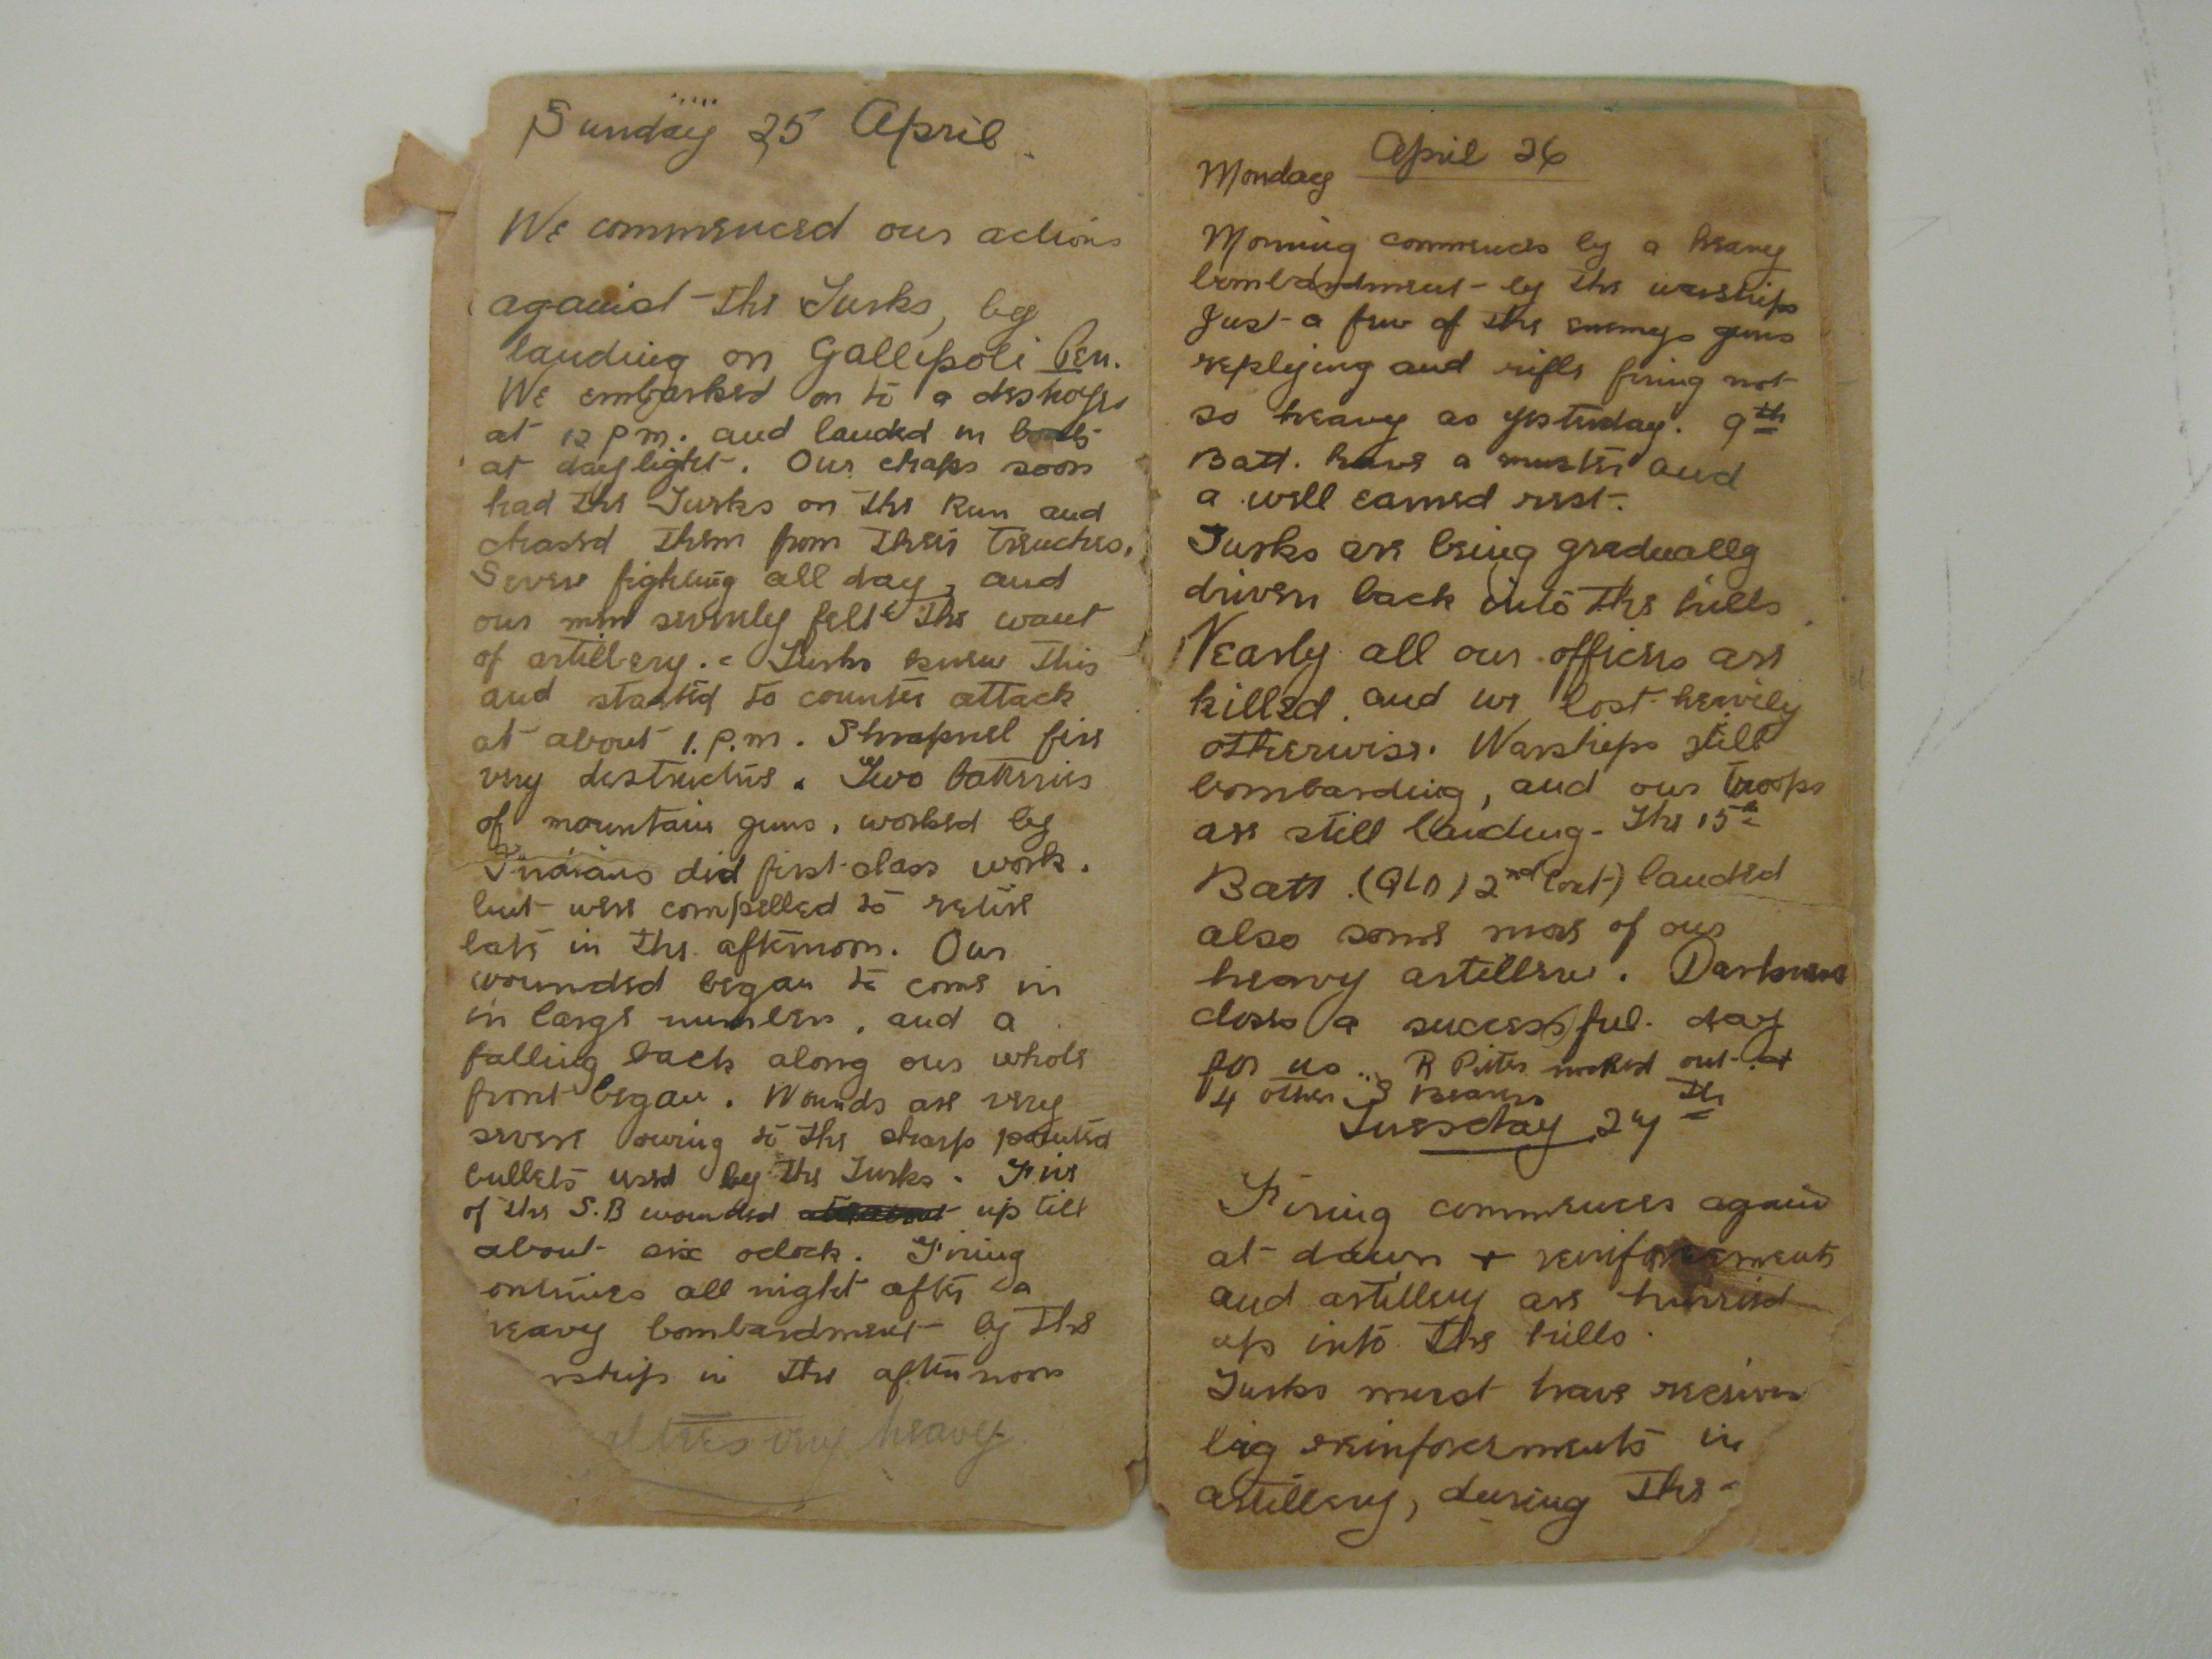 Sunday 25 April.
We commenced our actions
against the Turks, by
landing on Gallipoli Pen.
We embarked on to a destroyer
at 12 p m. and landed in boats
at daylight. Our chaps soon
had the Turks on the run and
chased them from their trenches.
Severe fighting all day, and
our men severely felt the want
of artillery. Turks knew this
and started to counter attack
at about 1. p.m. Shrapnel fire
very destructive. Two batteries
of mountain guns, worked by
Indians did first class work.
but were compelled to retire
late in the afternoon. Our
wounded began to come in
in large numbers, and a
falling back along our whole
front began. Wounds are very
severe owing to the sharp pointed
bullets used by the Turks. Five
of the S.B wounded up till
about six oclock. Firing
ontinues all night after a
eavy bombardment by the
rship in the afternoon
very heavy
April 26
Monday
Morning commences by a heavy
bombardment by the warships
Just a few of the enemys guns
replying and rifle firing not
so heavy as yesterday. 9th
Batt. have a muster and
a well earned rest.
Turks are being gradually
driven back into the hills.
Nearly all our officers are
killed. and we lost heavily
otherwise. Warships still
bombarding, and our troops
are still landing. The 15th
Batt. (QLD) 2nd Cont) landed
also some more of our
heavy artillery. Darkness
closes a sucessful. day
for us. R out
4 other S Bearers
Tuesday 27th
Firing commences again
at dawn + reinforcements
and artillery are hurried
up into the hills.
Turks must have receive
big reinforcements in
artillery, during the